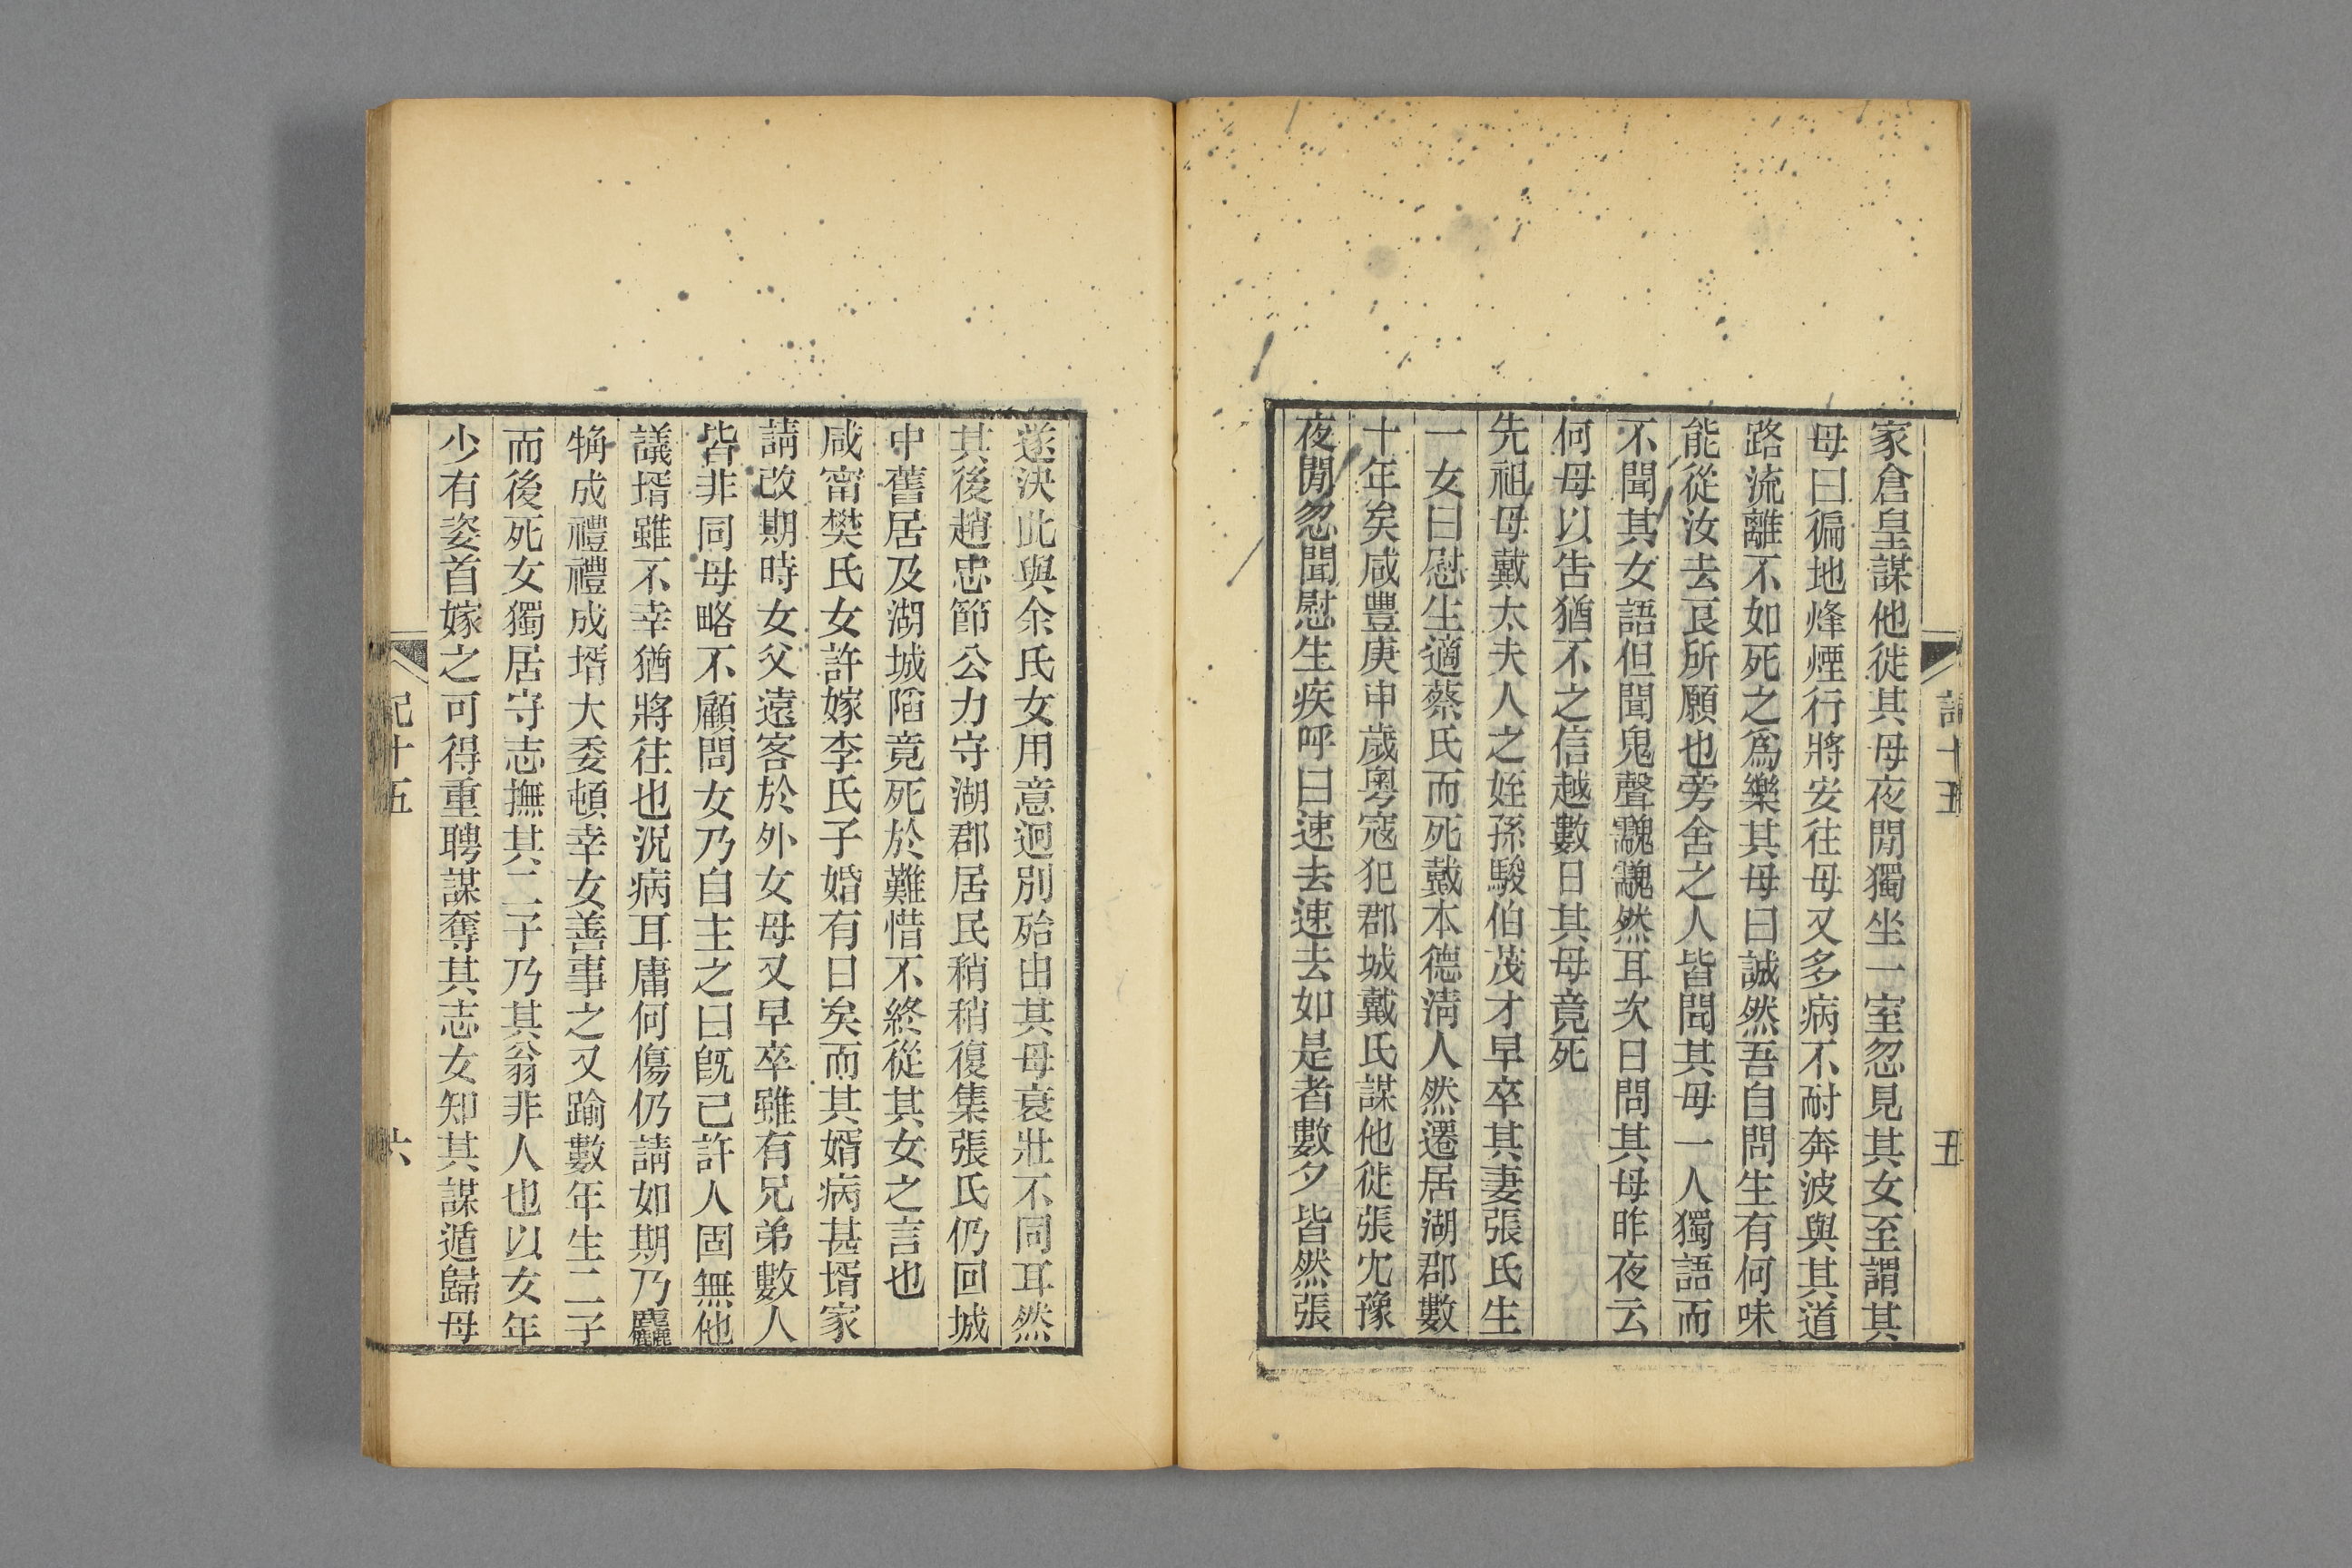 家倉皇謀他徙其母夜閒獨坐一室忽見其女至謂其
母曰徧地烽煙行將安往母又多病不耐奔波與其道
路流離不如死之爲樂其母曰誠然吾自問生有何味
能從汝去良所願也旁舍之人皆聞其母一人獨語而
不聞其女語但聞鬼聲䰰䰰然耳次日問其母昨夜云
何母以告猶不之信越數日其母竟死
先祖母戴太夫人之姪孫駿伯茂才早卒其妻張氏生
一女曰慰生適蔡氏而死戴本德淸人然遷居湖郡數
十年矣咸豐庚申歲粵寇犯郡城戴氏謀他徙張冘豫
夜閒忽聞慰生疾呼曰速去速去如是者數夕皆然張
十五
五
遂決此與余氏女用意迥別殆由其母衰壯不同耳然
其後趙忠節公力守湖郡居民稍稍復集張氏仍回城
中舊居及湖城陷竟死於難惜不終從其女之言也
咸甯樊氏女許嫁李氏子婚有日矣而其婿病甚壻家
請改期時女父遠客於外女母又早卒雖有兄弟數人
皆非同母略不顧問女乃自主之曰旣已許人固無他
議壻雖不幸猶將往也況病耳庸何傷仍請如期乃麤
觕成禮禮成壻大委頓幸女善事之又踰數年生二子
而後死女獨居守志撫其二子乃其翁非人也以女年
少有姿首嫁之可得重聘謀奪其志女知其謀遁歸母
記十五
六